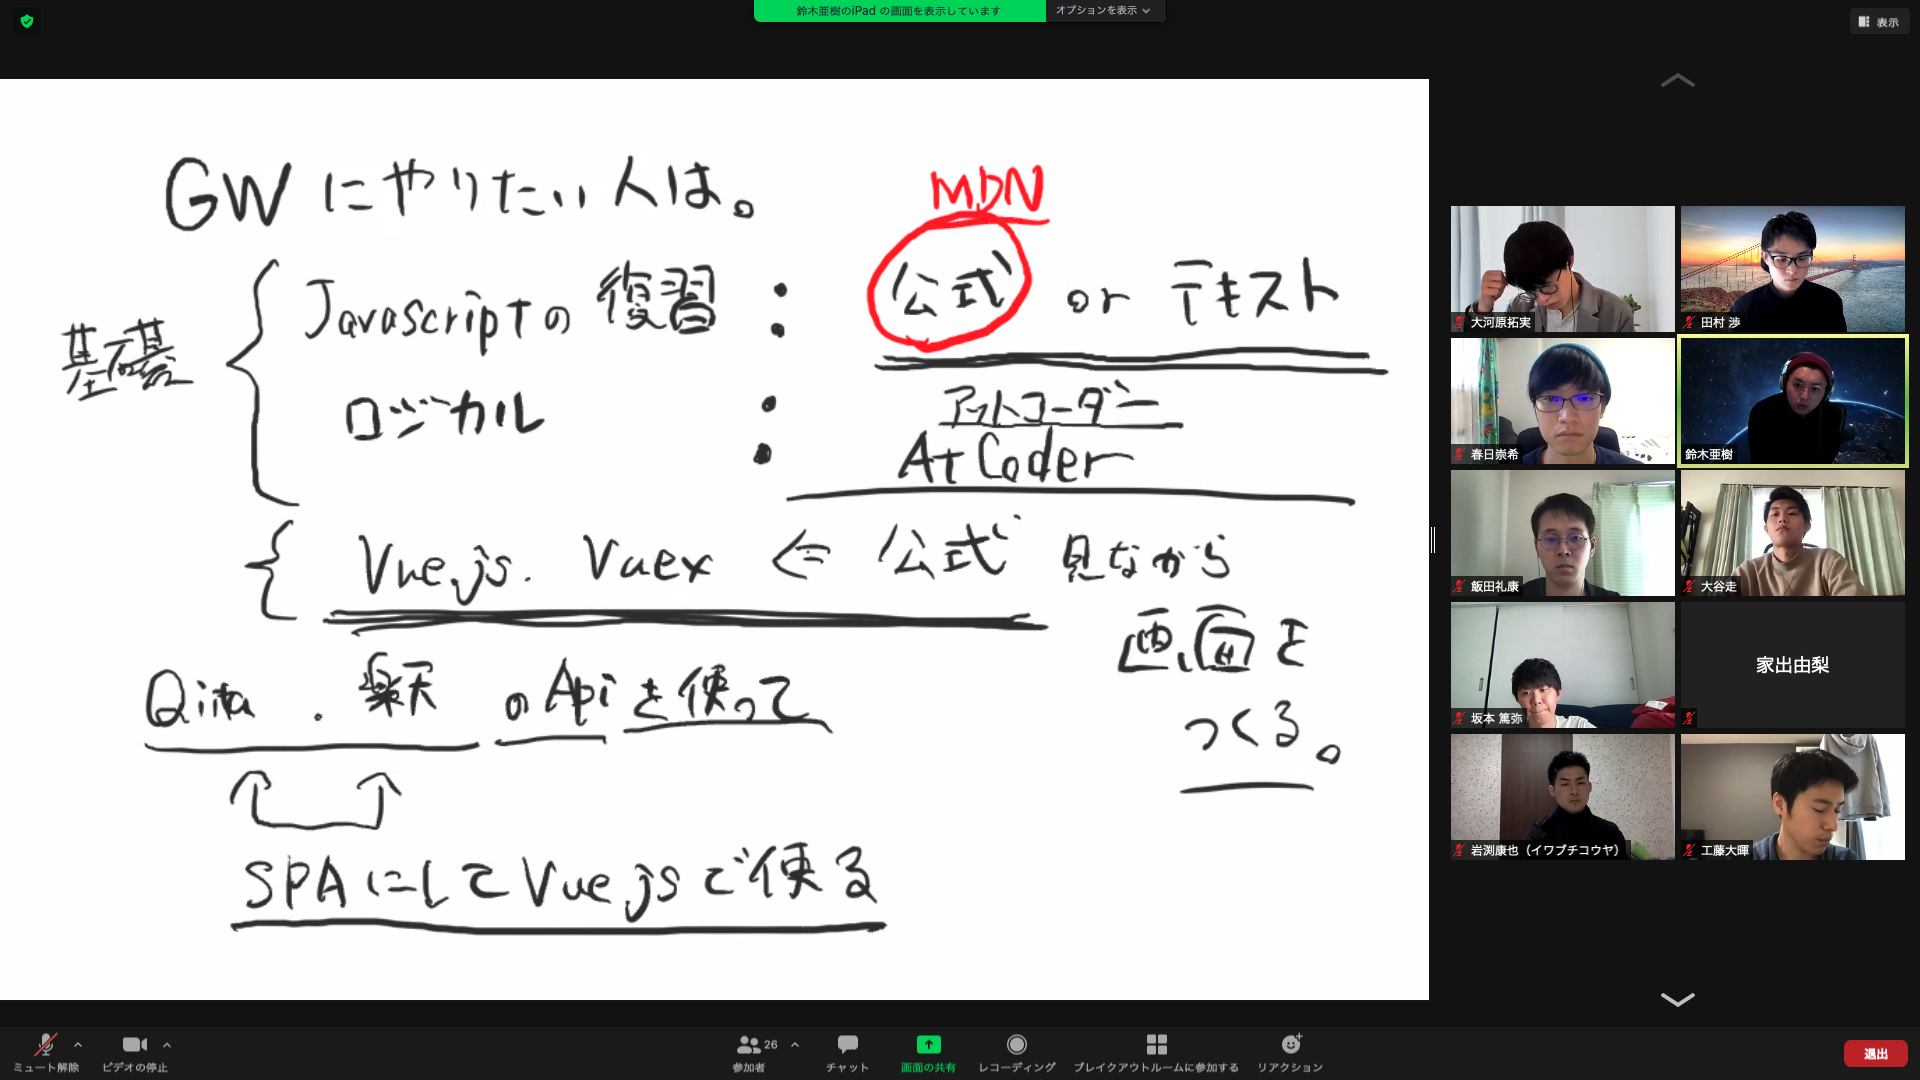 鈴木亜樹のiPad の画面を表示しています
オプションを表示
表示
GW にやりたい人は。
MDN
基礎
Javascriptの復習 : 公式 or テキスト
ロジカル : アットコーダー
At Coder
Vue.js. Vuex ⇐ 公式 見ながら
画面を
つくる。
Qiita . 楽天 のApiを使って
SPAにしてVue.jsで使る
大河原拓実
田村 渉
春日崇希
鈴木亜樹
飯田礼康
大谷走
坂本 篤弥
家出由梨
岩渕康也（イワブチコウヤ）
工藤大暉
ミュート解除
ビデオの停止
26
参加者
チャット
画面の共有
レコーディング
ブレイクアウトルームに参加する
リアクション
退出